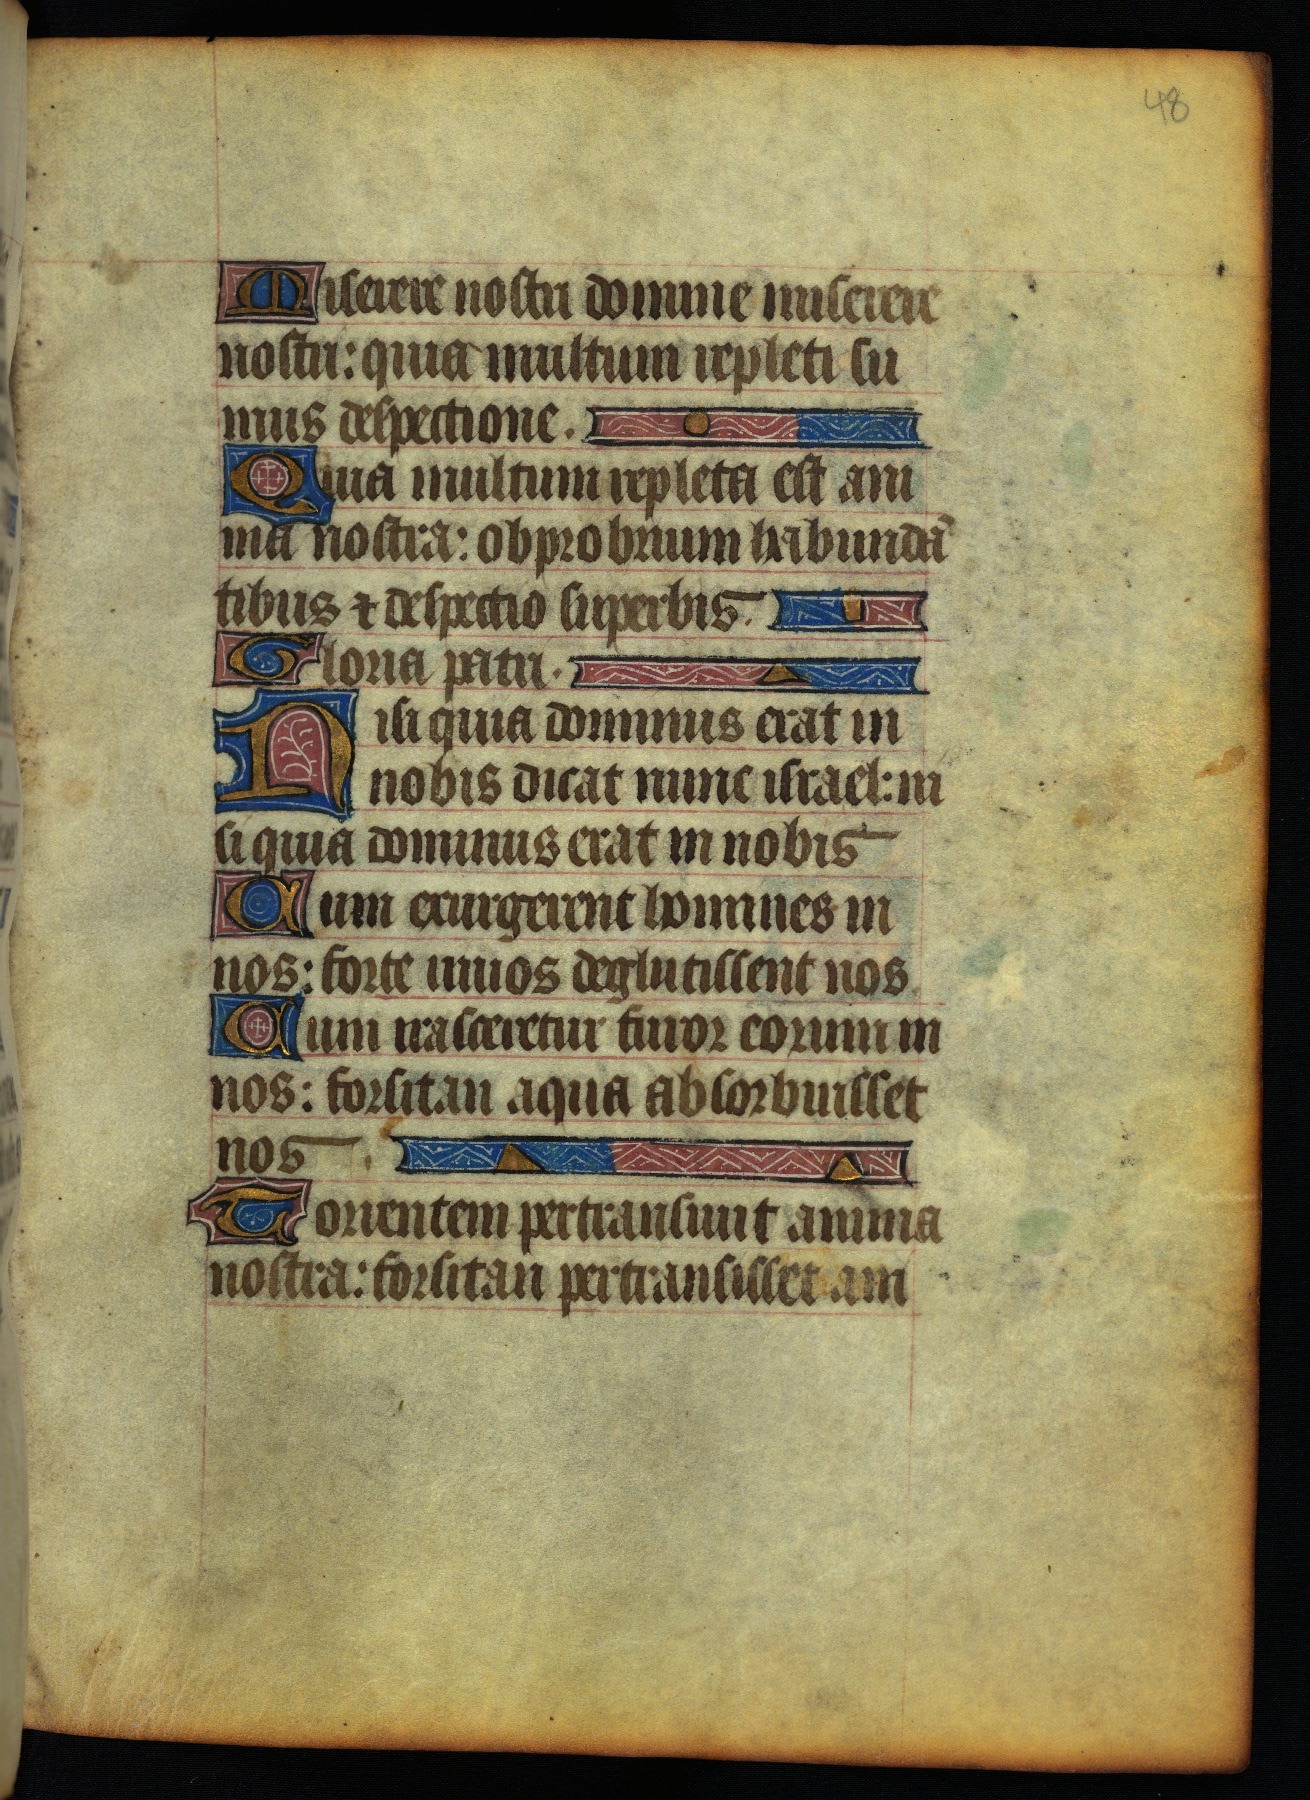 48
Miserere nostri domine miserere
nostri: quia multum repleti su
mus despectione.
Quia multum repleta est ani
ma nostra: obprobrium habundā
tibus ⁊ despectio superbis.
Gloria patri.
Nisi quia dominus erat in
nobis dicat nunc israel: ni
si quia dominus erat in nobis
Cum exurgerent homines in
nos: forte uiuos deglutissent nos
Cum irasceretur furor eorum in
nos: forsitan aqua absorbuisset
nos.
Torrentem pertransiuit anima
nostra: forsitan pertransisset ani